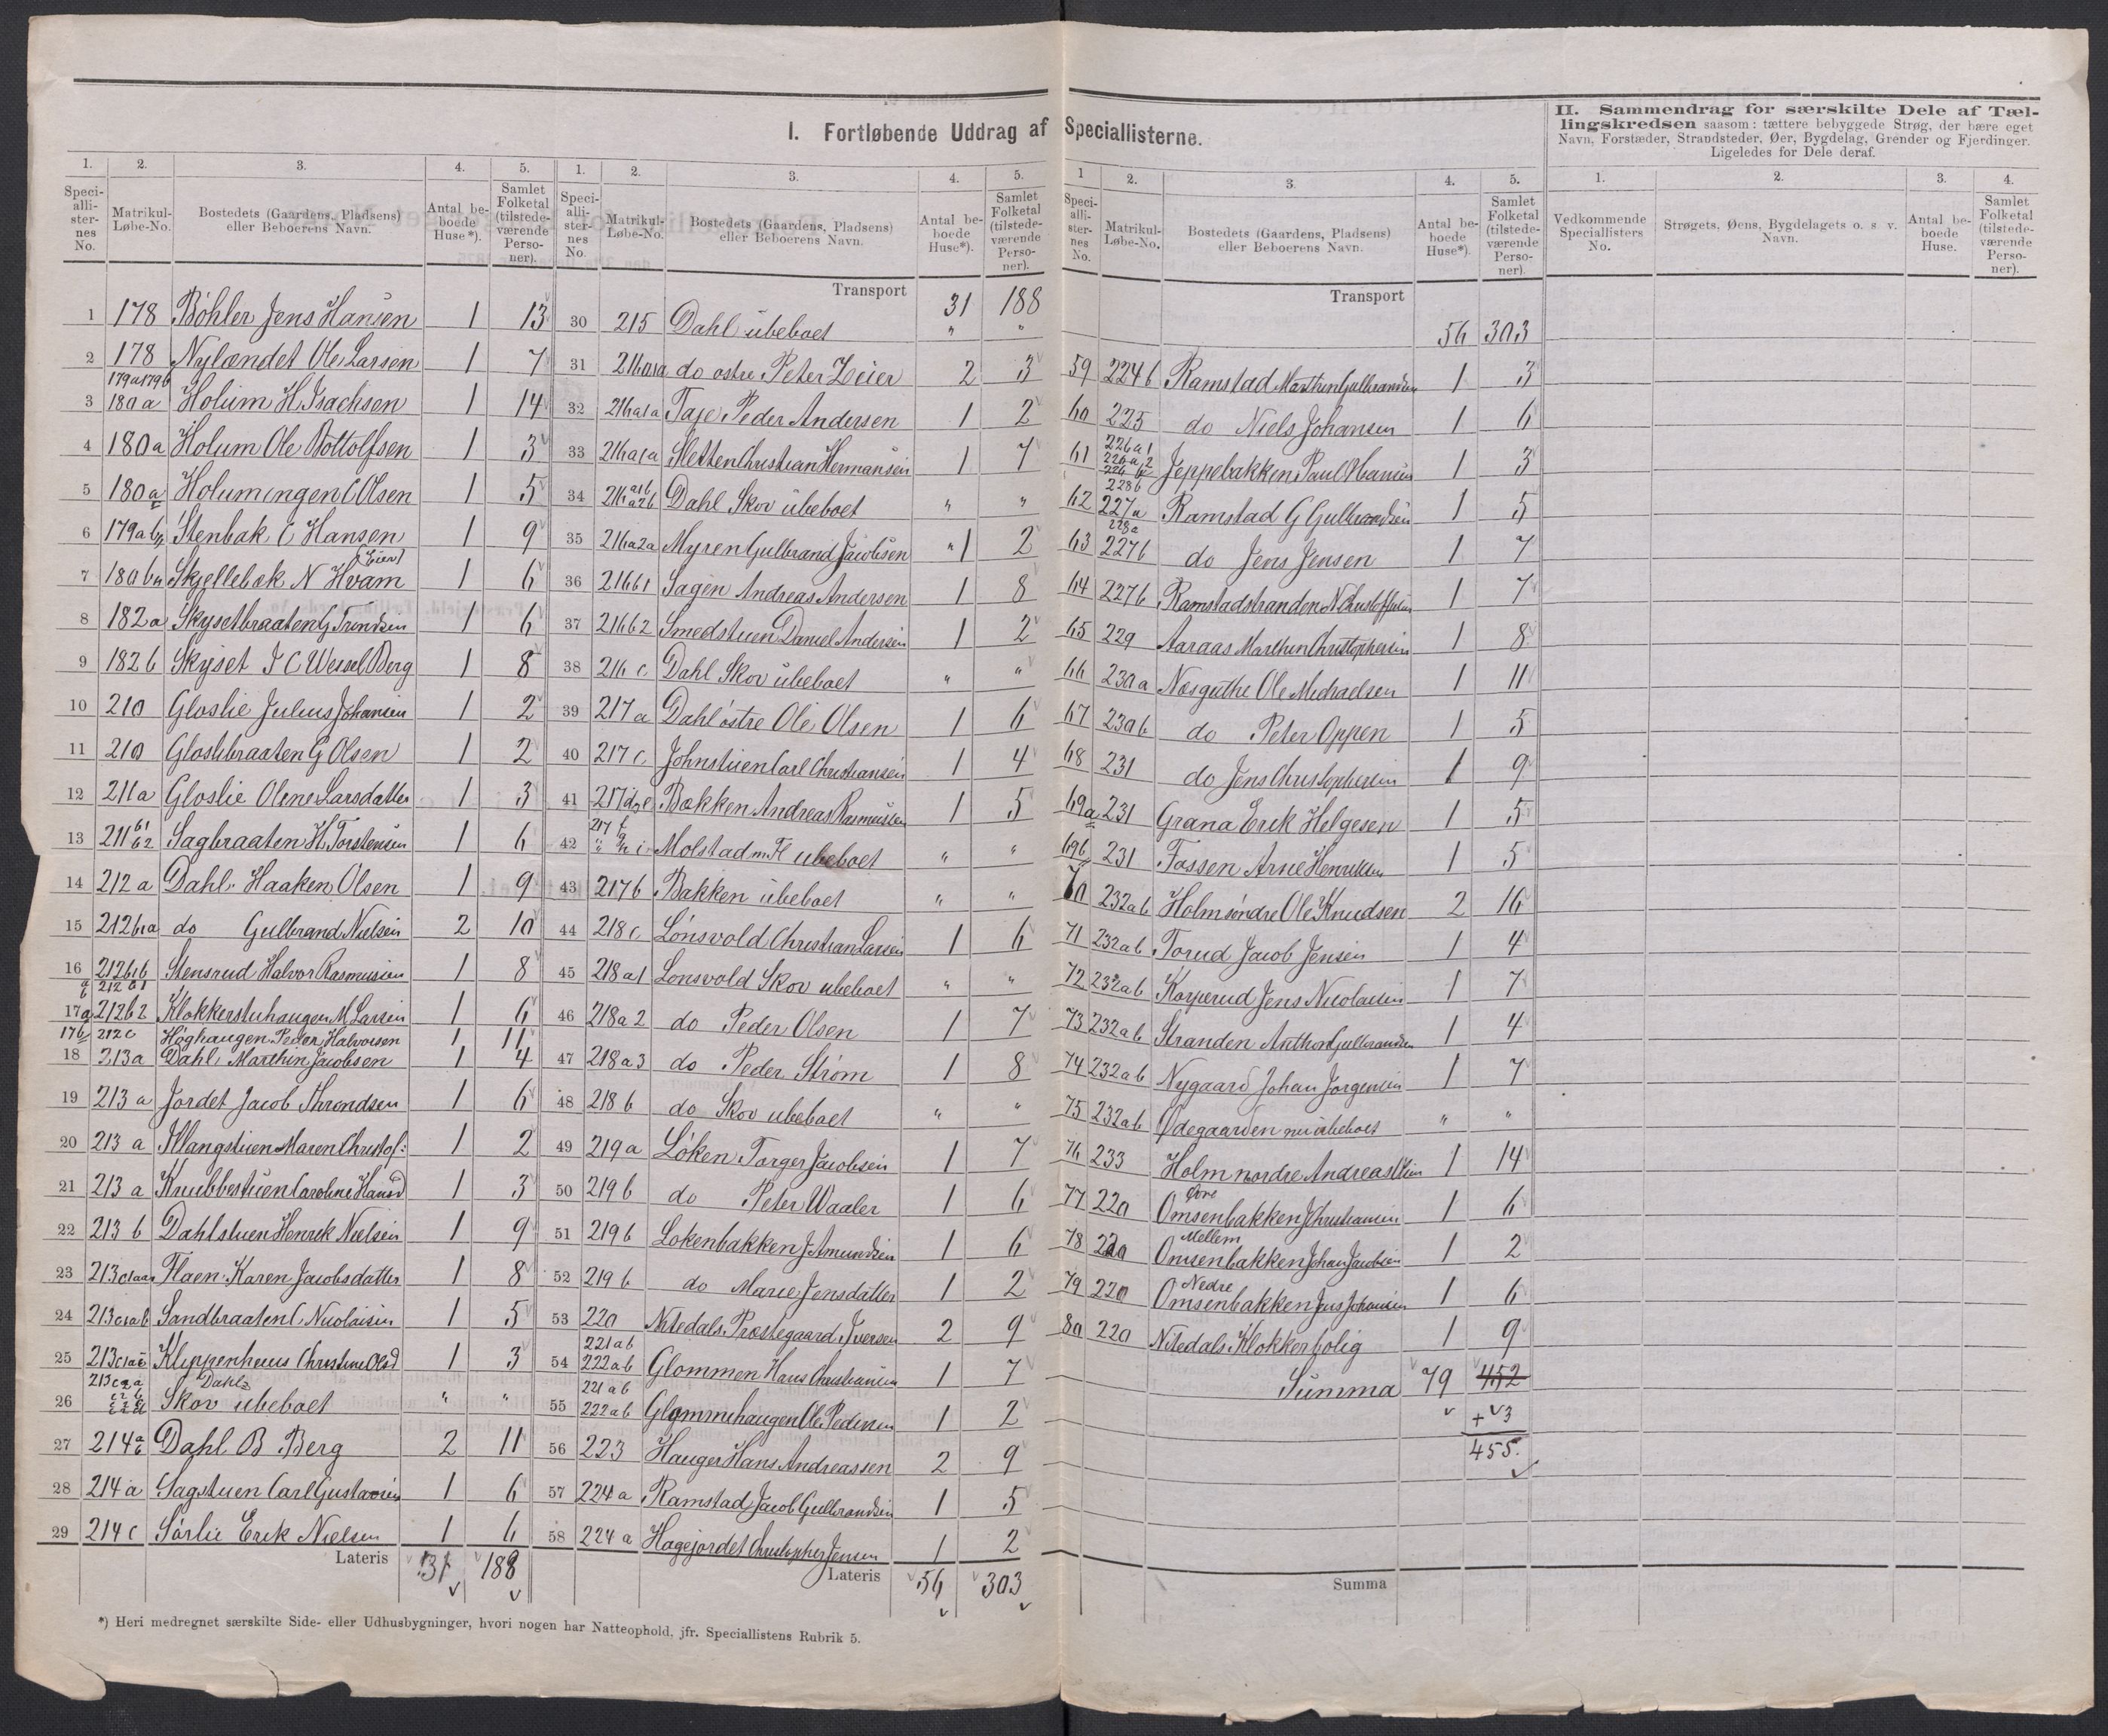 I. Fortløbende Uddrag af Speciallisterne.
1. 2. 3. 4. 5.
Speciallisternes No. Matrikul-Løbe-No. Bostedets (Gaardens, Pladsens) eller Beboerens Navn. Antal beboede Huse*). Samlet Folketal (tilstedeværende Personer).
1 178 Böhler Jens Hansen 1 13
2 178 Nylændet Ole Larsen 1 7
179a179b
3 180a Holum H Isachsen 1 14
4 180a Holum Ole Bottolfsen 1 3
5 180a Holumingen C Olsen 1 5
6 179a Stenbak C Hansen 1 9
(Eier)
7 180b Skjellebæk N Hvam 1 6
8 182a Skysetbraaten G Trondsen 1 6
9 182b Skyset J C Wessel Berg 1 8
10 210 Gloslie Julius Johansen 1 2
11 210 Gloslibraaten G Olsen 1 2
12 211a Gloslie Olene Larsdatter 1 3
13 211 b1 b2 Sagbraaten H. Torstensen 1 6
14 212a Dahl Haaken Olsen 1 9
15 212b1a do Gulbrand Nielsen 2 10
16 212b1b Stensrud Halvor Rasmussen 1 8
17a 212b2 Klokkerstuhaugen M Larsen 1 6
17b 212c Höghaugen Peder Halvorsen 1 11
18 213a Dahl Marthin Jacobsen 1 4
19 213a Jordet Jacob Throndsen 1 6
20 213a Klangstuen Maren Christof: 1 2
21 213a Knubbestuen Caroline Hansd 1 3
22 213b Dahlstuen Henrik Nielsen 1 9
23 213c1aa Flaen Karen Jacobsdatter 1 8
24 213c1ab Sandbraaten C. Nicolaisen 1 5
25 213c1ac Klippenhuus Christine Olsd 1 3
213c2a Dahls
26 Skov ubeboet " "
27 214 a b Dahl B Berg 2 11
28 214a Sagstuen Carl Gustavsen 1 6
29 214c Sörlie Erik Nielsen 1 6
Lateris 31 188
*) Heri medregnet særskilte Side- eller Udhusbygninger, hvori nogen har Natteophold, jfr. Speciallistens Rubrik 5.
1. 2. 3. 4. 5.
Speciallisternes No. Matrikul-Løbe-No. Bostedets (Gaardens, Pladsens) eller Beboerens Navn. Antal beboede Huse*). Samlet Folketal (tilstedeværende Personer).
Transport 31 188
30 215 Dahl ubeboet " "
31 216a1a do östre Peter Zeier 2 3
32 216a1a Taje Peder Andersen 1 2
33 216a1a Sletten Christian Hermansen 1 7
34 216 a1b a2b Dahl Skov ubeboet " "
35 216a2a Myren Gulbrand Jacobsen 1 2
36 216b1 Sagen Andreas Andersen 1 8
37 216b2 Smedstuen Daniel Andersen 1 2
38 216c Dahl Skov ubeboet " "
39 217a Dahl östre Ole Olsen 1 6
40 217c Johnstuen Carl Christiansen 1 4
41 217d,e Bakken Andreas Rasmussen 1 5
217 f
42 Molstad m Fl ubeboet " "
43 217b Bakken ubeboet " "
44 218c Lönsvold Christian Larsen 1 6
45 218a1 Lonsvold Skov ubeboet " "
46 218a2 do Peder Olsen 1 7
47 218a3 do Peder Ström 1 8
48 218b do Skov ubeboet " "
49 219a Löken Torger Jacobsen 1 7
50 219b do Peter Waaler 1 6
51 219b Lokenbakken J Amundsen 1 6
52 219b do Marie Jensdatter 1 2
53 220 Nitedals Præstegaard Iversen 2 9
221ab
54 222ab Glommen Hans Christiansen 1 7
221ab
55 222ab Glommehaugen Ole Pedersen 1 2
56 223 Hauger Hans Andreassen 2 9
57 224a Ramstad Jacob Gulbrandsen 1 5
58 224a Hagejordet Christopher Jensen 1 2
Lateris 56 303
1 2. 3. 4. 5.
Speciallisternes No. Matrikul-Løbe-No. Bostedets (Gaardens, Pladsens) eller Beboerens Navn. Antal beboede Huse*). Samlet Folketal (tilstedeværende Personer).
Transport
56 303
59 224b Ramstad Marthin Gulbrandsen 1 3
60 225 do Niels Johansen 1 6
226a1
226a2
61 226b Jeppebakken Paul Hansen 1 3
228b
62 227a Ramstad G Gulbrandsen 1 5
228a
63 227b do Jens Jensen 1 7
64 227b Ramstadstranden N Christoffersen 1 7
65 229 Aaraas Marthin Christophersen 1 8
66 230a Næsguthe Ole Michaelsen 1 11
67 230b do Peter Oppen 1 5
68 231 do Jens Christophersen 1 9
69a 231 Grana Erik Helgesen 1 5
69b 231 Fossen Arne Henriksen 1 5
70 232ab Holm söndre Ole Knudsen 2 16
71 232ab Torud Jacob Jensen 1 4
72 232ab Korperud Jens Nicolaisen 1 7
73 232ab Stranden Anthon Gulbrandsen 1 4
74 232ab Nygaard Johan Jörgensen 1 7
75 232ab Ödegaarden nu ubeboet " "
76 233 Holm nordre Andreas Olsen 1 14
Övre
77 220 Omsenbakken J Christiansen 1 6
Mellem
78 220 Omsenbakken Johan Jacobsen 1 2
Nedre
79 220 Omsenbakken Jens Johansen 1 6
80 220 Nitedals Klokkerbolig 1 9
Summa 79 452
+ 3
455.
Summa
II. Sammendrag for særskilte Dele af Tæl-
lingskredsen saasom: tættere bebyggede Strøg, der bære eget
Navn, Forstæder, Strandsteder, Øer, Bygdelag, Grender og Fjerdinger.
Ligeledes for Dele deraf.
1. 2. 3. 4.
Vedkommende Speciallisters No. Strøgets, Øens, Bygdelagets o. s v. Navn. Antal beboede Huse. Samlet Folketal (tilstedeværende Personer).